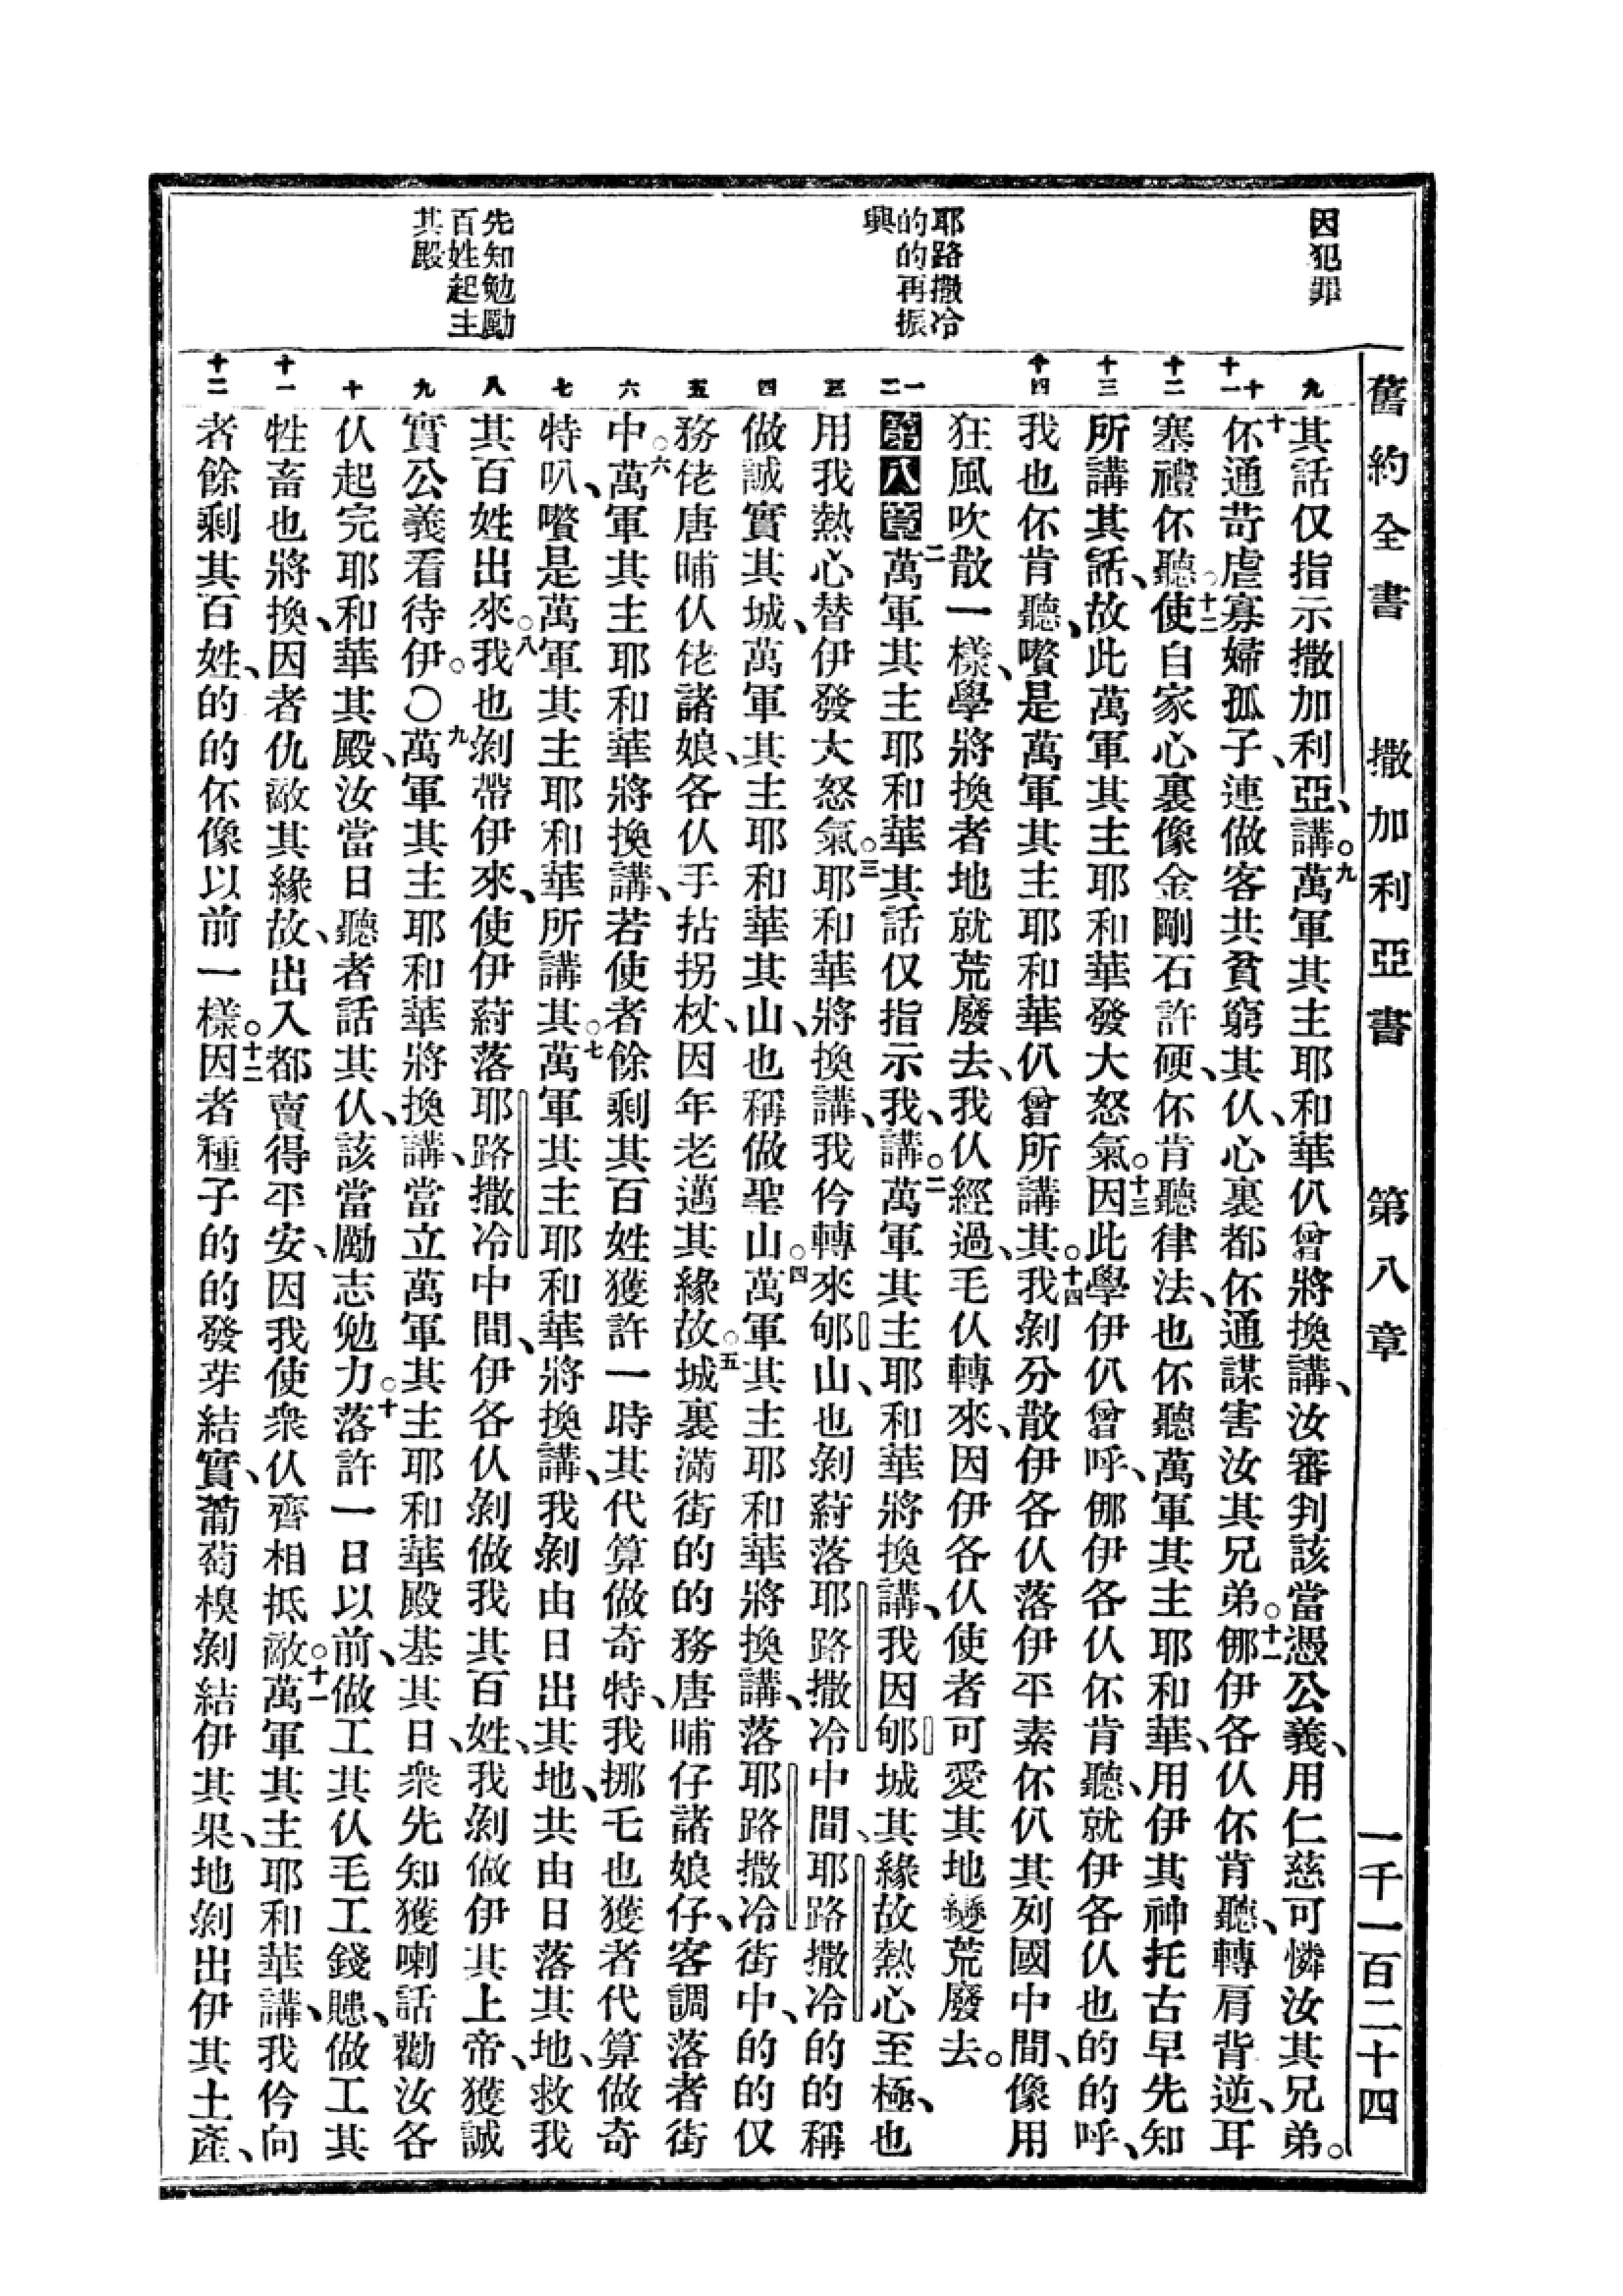 舊約全書　撒加利亞書　第八章　一千一百二十四
因犯罪
耶路撒冷
的的再振
興
先知勉勵
百姓起主
其殿
九
其話仅指示撒加利亞、講。九萬軍其主耶和華仈曾將換講、汝審判該當憑公義、用仁慈可憐汝其兄弟。
十 十一
十伓通苛虐寡婦孤子、連做客共貧窮其仈、心裏都伓通謀害汝其兄弟。十一挪伊各仈伓肯聽、轉肩背逆、耳
十二
塞禮伓聽。十二使自家心裏像金剛石許硬、伓肯聽律法、也伓聽萬軍其主耶和華、用伊其神托古早先知
十三
所講其話、故此萬軍其主耶和華發大怒氣。十三因此學伊仈曾呼、挪伊各仈伓肯聽、就伊各仈也的的呼、
十四
我也伓肯聽、嚽是萬軍其主耶和華仈曾所講其。十四我剝分散伊各仈落伊平素伓仈其列國中間、像用
狂風吹散一樣、學將換者地就荒廢去、我仈經過、毛仈轉來、因伊各仈使者可愛其地變荒廢去。
一 二
第八章 萬軍其主耶和華其話仅指示我、講。二萬軍其主耶和華將換講、我因郇城其緣故熱心至極、也
三
用我熱心替伊發大怒氣。三耶和華將換講、我仱轉來郇山、也剝蒪落耶路撒冷中間、耶路撒冷的的稱
四
做誠實其城、萬軍其主耶和華其山、也稱做聖山。四萬軍其主耶和華將換講、落耶路撒冷街中、的的仅
五
務佬唐晡仈佬諸娘、各仈手拈拐杖、因年老邁其緣故。五城裏滿街的的務唐晡仔諸娘仔、客調落者街
六
中。六萬軍其主耶和華將換講、若使者餘剩其百姓獲許一時其代算做奇特、我挪乇也獲者代算做奇
七
特叭、嚽是萬軍其主耶和華、所講其。七萬軍其主耶和華將換講、我剝由日出其地、共由日落其地、救我
八
其百姓出來。八我也剝帶伊來、使伊蒪落耶路撒冷中間、伊各仈剝做我其百姓、我剝做伊其上帝、獲誠
九
實公義看待伊。〇九萬軍其主耶和華將換講、當立萬軍其主耶和華殿基其日、衆先知獲喇話勸汝各
十
仈起完耶和華其殿、汝當日聽者話其仈、該當勵志勉力。十落許一日以前、做工其仈毛工錢䞃、做工其
十一
牲畜也將換、因者仇敵其緣故、出入都賣得平安、因我使衆仈齊相抵敵。十一萬軍其主耶和華講、我仱向
十二
者餘剩其百姓、的的伓像以前一樣。十二因者種子的的發芽結實、葡萄模剝結伊其果、地剝出伊其土產、